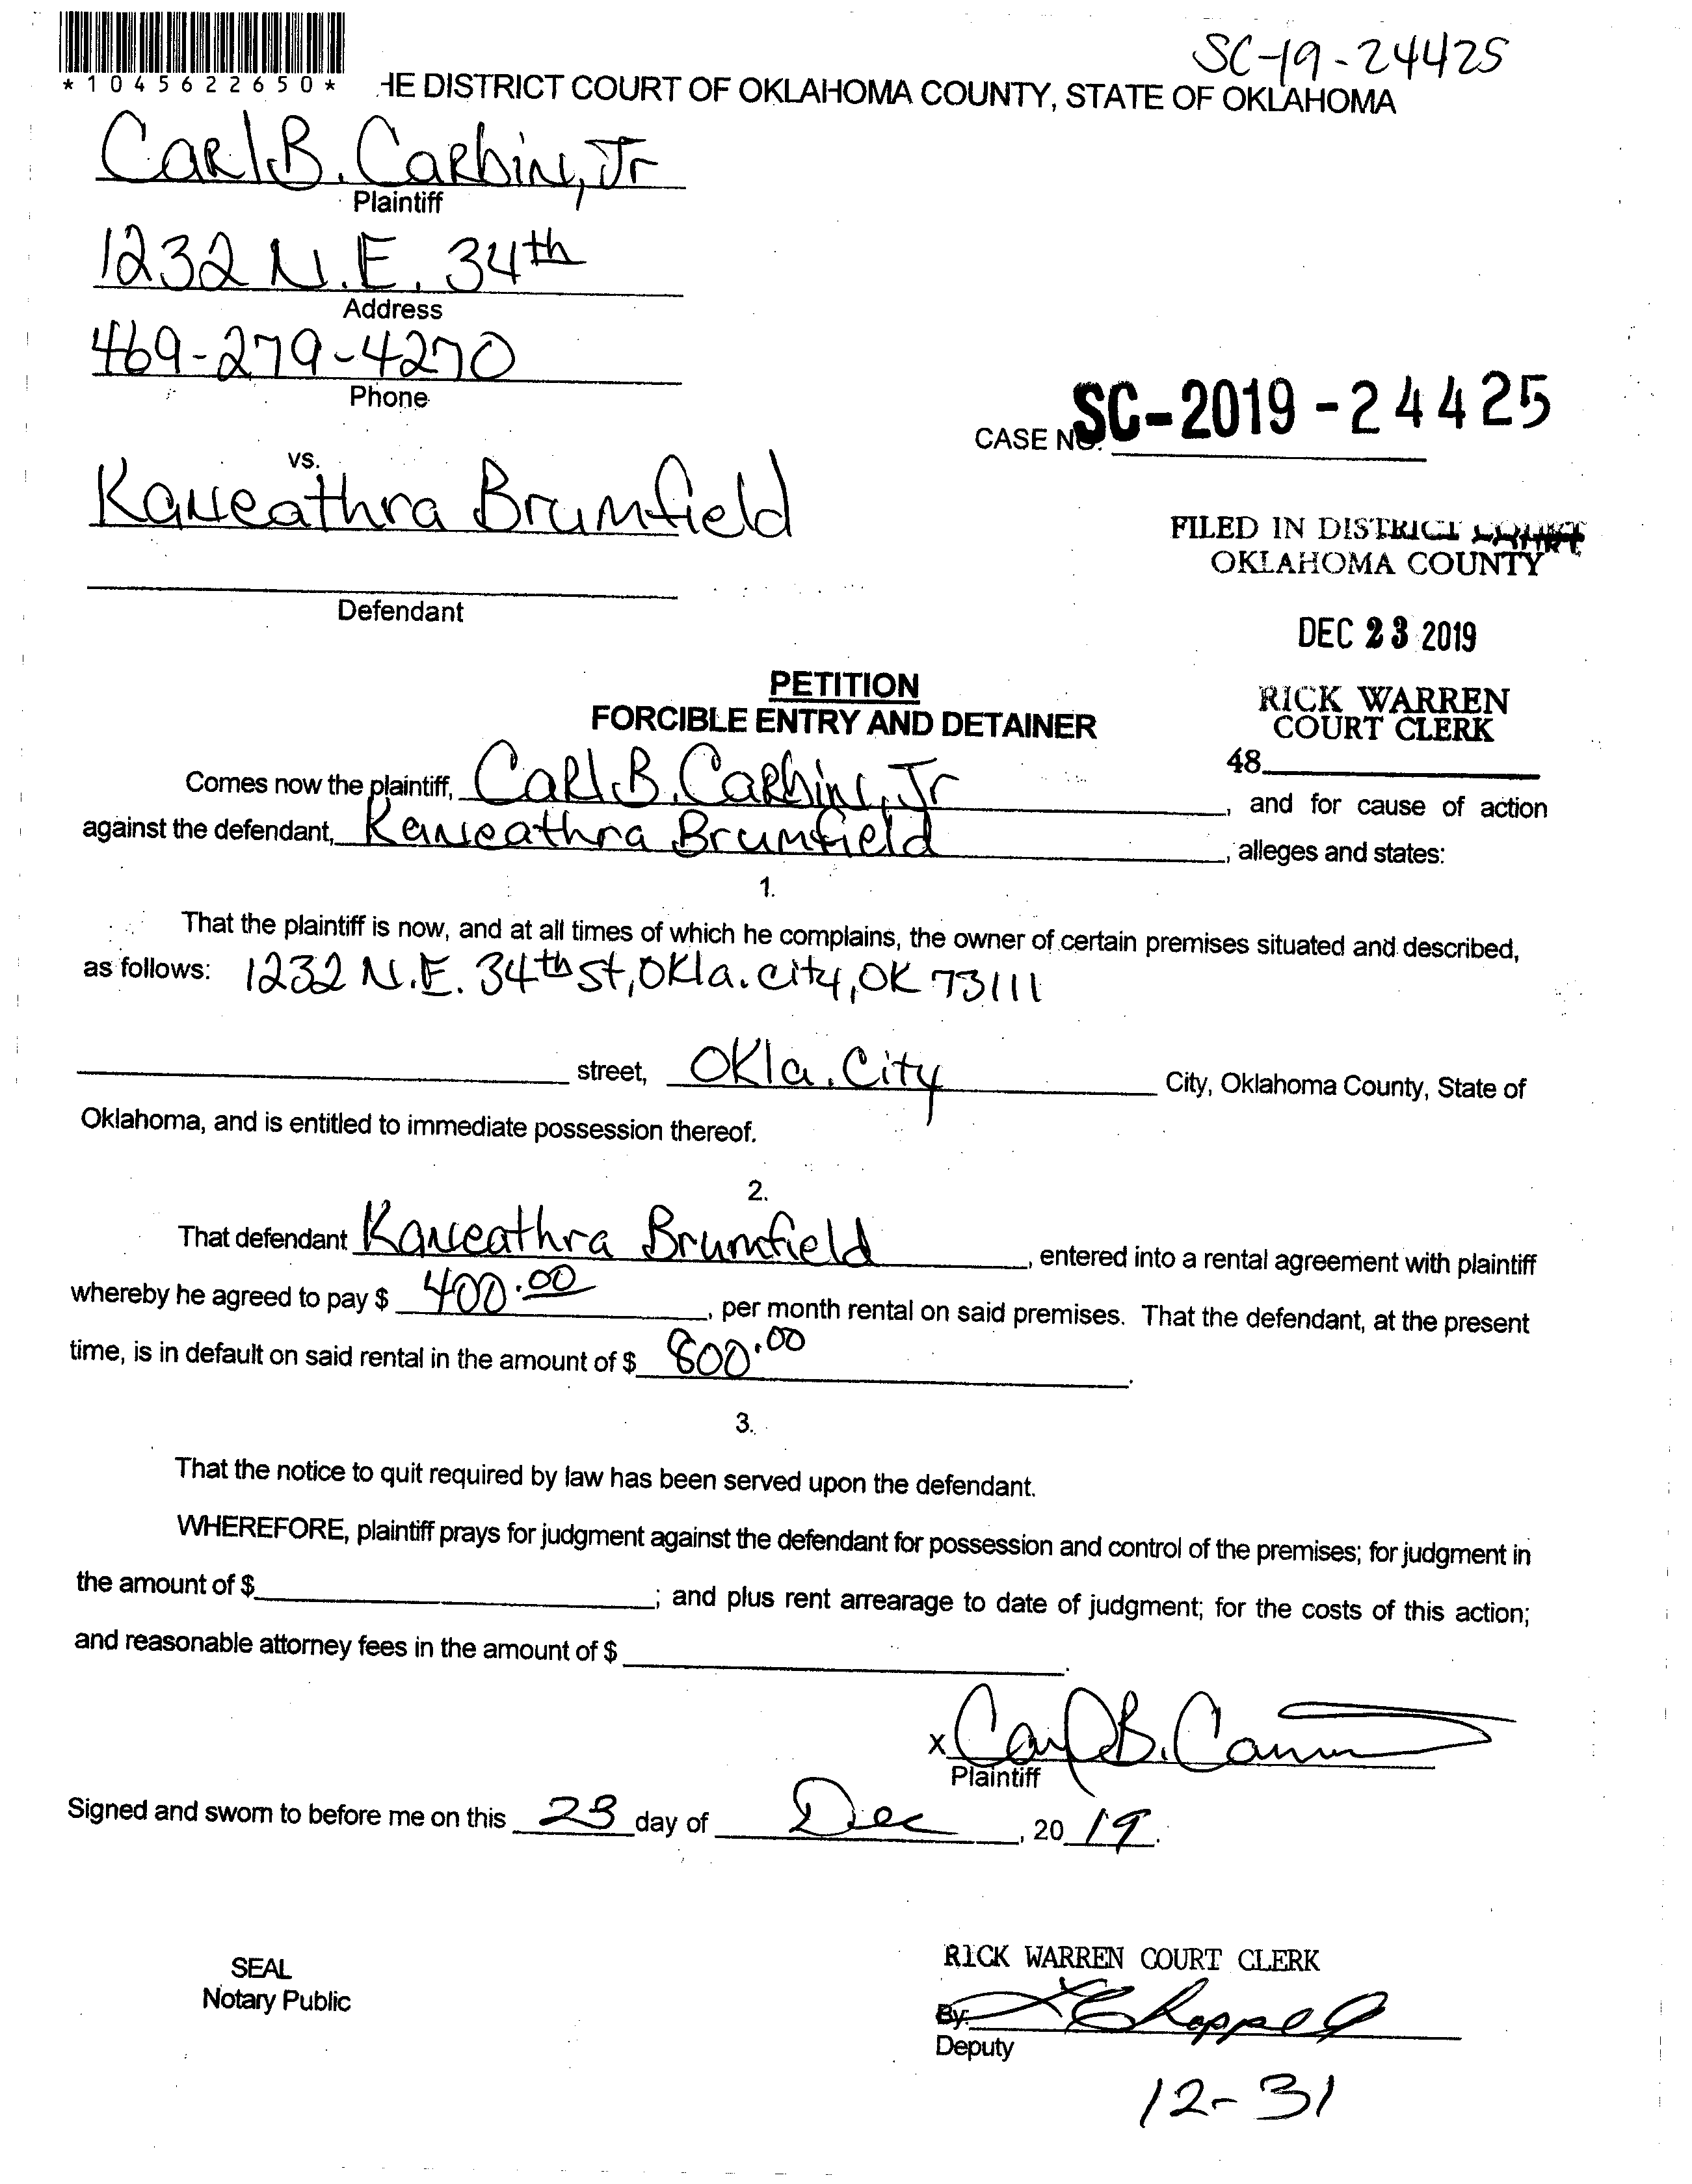 SC-19-24425
*1045622650*
HE DISTRICT COURT OF OKLAHOMA COUNTY, STATE OF OKLAHOMA
Carl B. Carbins, Jr
Plaintiff
1232 N.E. 34th
Address
469-279-4270
Phone
CASE NO. SC-2019-24425
vs.
Kaneathra Brumfield
Defendant
FILED IN DISTRICT COURT
OKLAHOMA COUNTY
DEC 23 2019
RICK WARREN
COURT CLERK
48
PETITION
FORCIBLE ENTRY AND DETAINER
Comes now the plaintiff, Carl B. Carbins, Jr, and for cause of action
against the defendant, Kaneathra Brumfield, alleges and states:
1.
That the plaintiff is now, and at all times of which he complains, the owner of certain premises situated and described,
as follows: 1232 N.E. 34th St, Okla. City, OK 73111
street, Okla. City City, Oklahoma County, State of
Oklahoma, and is entitled to immediate possession thereof.
2.
That defendant Kaneathra Brumfield, entered into a rental agreement with plaintiff
whereby he agreed to pay $ 400.00, per month rental on said premises. That the defendant, at the present
time, is in default on said rental in the amount of $ 800.00.
3.
That the notice to quit required by law has been served upon the defendant.
WHEREFORE, plaintiff prays for judgment against the defendant for possession and control of the premises; for judgment in
the amount of $ ; and plus rent arrearage to date of judgment; for the costs of this action;
and reasonable attorney fees in the amount of $ .
x Carl B.
Plaintiff
Signed and sworn to before me on this 23 day of Dec, 2019.
SEAL
Notary Public
RICK WARREN COURT CLERK
By: Chappel
Deputy
12-31